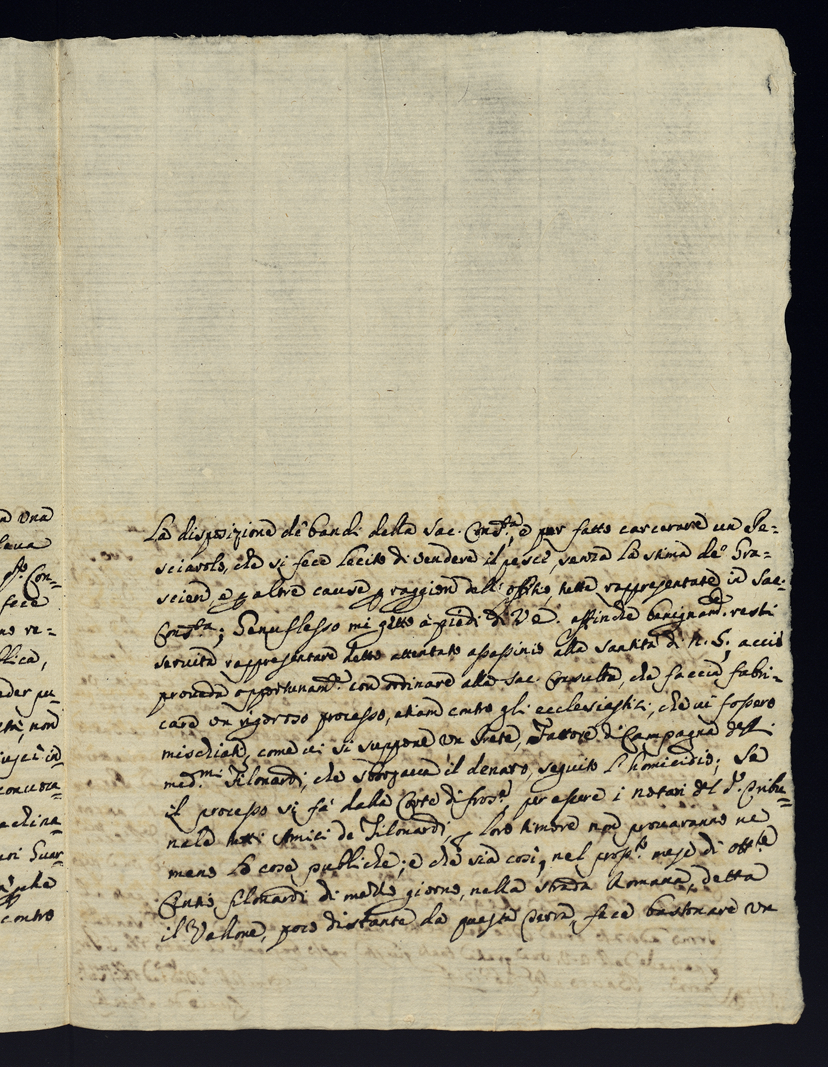 a una
leva
Con-
fece
no re-
blica,
eder pu-
non
contro
La disposizione de bandi della Sac. Cons.ta, e per fatto carcerare un Pe-
sciarolo, che si fece lecito di vendere il pesce, senza la stima de Gra-
scieri, e p altre cause p raggion dell'offitio, tutte rappresentate in Sac.
Cons.ta; Genuflesso mi getto a piedi di VE. affinche benignam.e resti
servita rappresentare detto attentato assassinio alla Santità di N. S., acciò
proveda opportunam.e con ordinare alla Sac. Consulta, che faccia fabri-
care un rigoroso processo, etiam contro gli ecclesiastici, che vi fossero
mischiati, come vi si suppone un Prete, Fattore di Campagna delli
med.mi Filonardi, che sborzava il denaro, seguito l'homicidio; Se
il processo si fà dalla Corte di Fros.e, per essere i notari del d.o Tribu-
nale tutti Amici de Filonardi, p loro timore non provaranno ne
meno le cose publiche; e che sia così, nel pros.o mese di ott.e
Filonardi di mezzo giorno, nella strada Romana, detta
il Vallone, poco distante da questa Terra, fece bastonare un